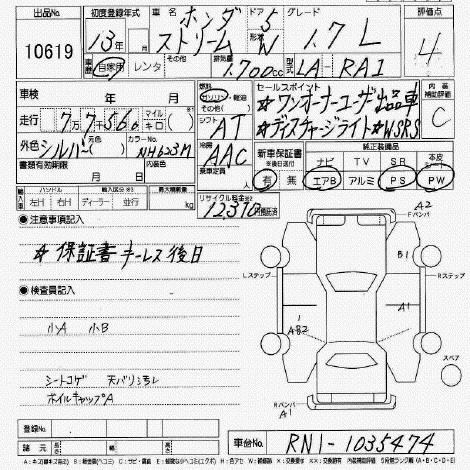 出品No 初度登録年式 車名 ドア 形状 グレード 評価点
10619 13年 月 ホンダ ストリーム 5 W 1.7L 4
車歴 自家用 レンタ その他( ) 排気量 1.700cc 型式 LA-RA1
車検 年 月
燃料 ガソリン・軽油 その他( )
セールスポイント
☆ワンオーナーユーザー出品車
☆ディスチャージライト☆WSRS
内装補助評価
C
走行 7万7千566 マイル キロ( )
シフト AT
外色 シルバー (元色) カラーNo. NH623M
冷房 AAC
新車保証書 ※後日送付
有 無
純正装備品
ナビ TV SR 本皮
エアB アルミ PS PW
書類有効期限 月 日 内装色
乗車定員 人
輸入車 ハンドル 左H 右H 輸入区分※3 ディーラー 並行 最大積載量 kg
リサイクル料金 12,370円預託済
●注意事項記入
☆保証書 キーレス後日
●検査員記入
小A 小B
シートコゲ 天バリシミ
ホイルキャップA
A2
Fバンパ
B1
Lステップ Rステップ
A1
スペア
Rバンパ
A1
登録No.
諸元 長さ 幅 高さ
車台No. RN1-1035474